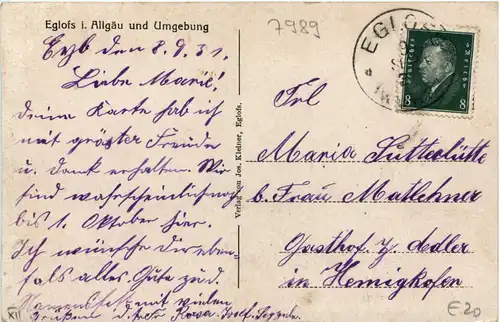 Eglofs i. Allgäu und Umgebung
7989
Eglofs den 8.9.31.
Liebe Marie!
deine Karte hab ich
mit größter Freude
u. Dank erhalten. Wir
sind wahrscheinlich noch
bis 1. Oktober hier.
Ich wünsche dir eben-
falls alles Gute zud.
Namensfest mit vielen
Grüßen Rosa Josef
Verlag von Jos. Kleiner, Eglofs.
EGLOFS
DEUTSCHES REICH
8 8
Frl
Maria Sutterlütte
b. Frau Matlehner
Gasthof z. Adler
in Hemigkofen
XII
E20